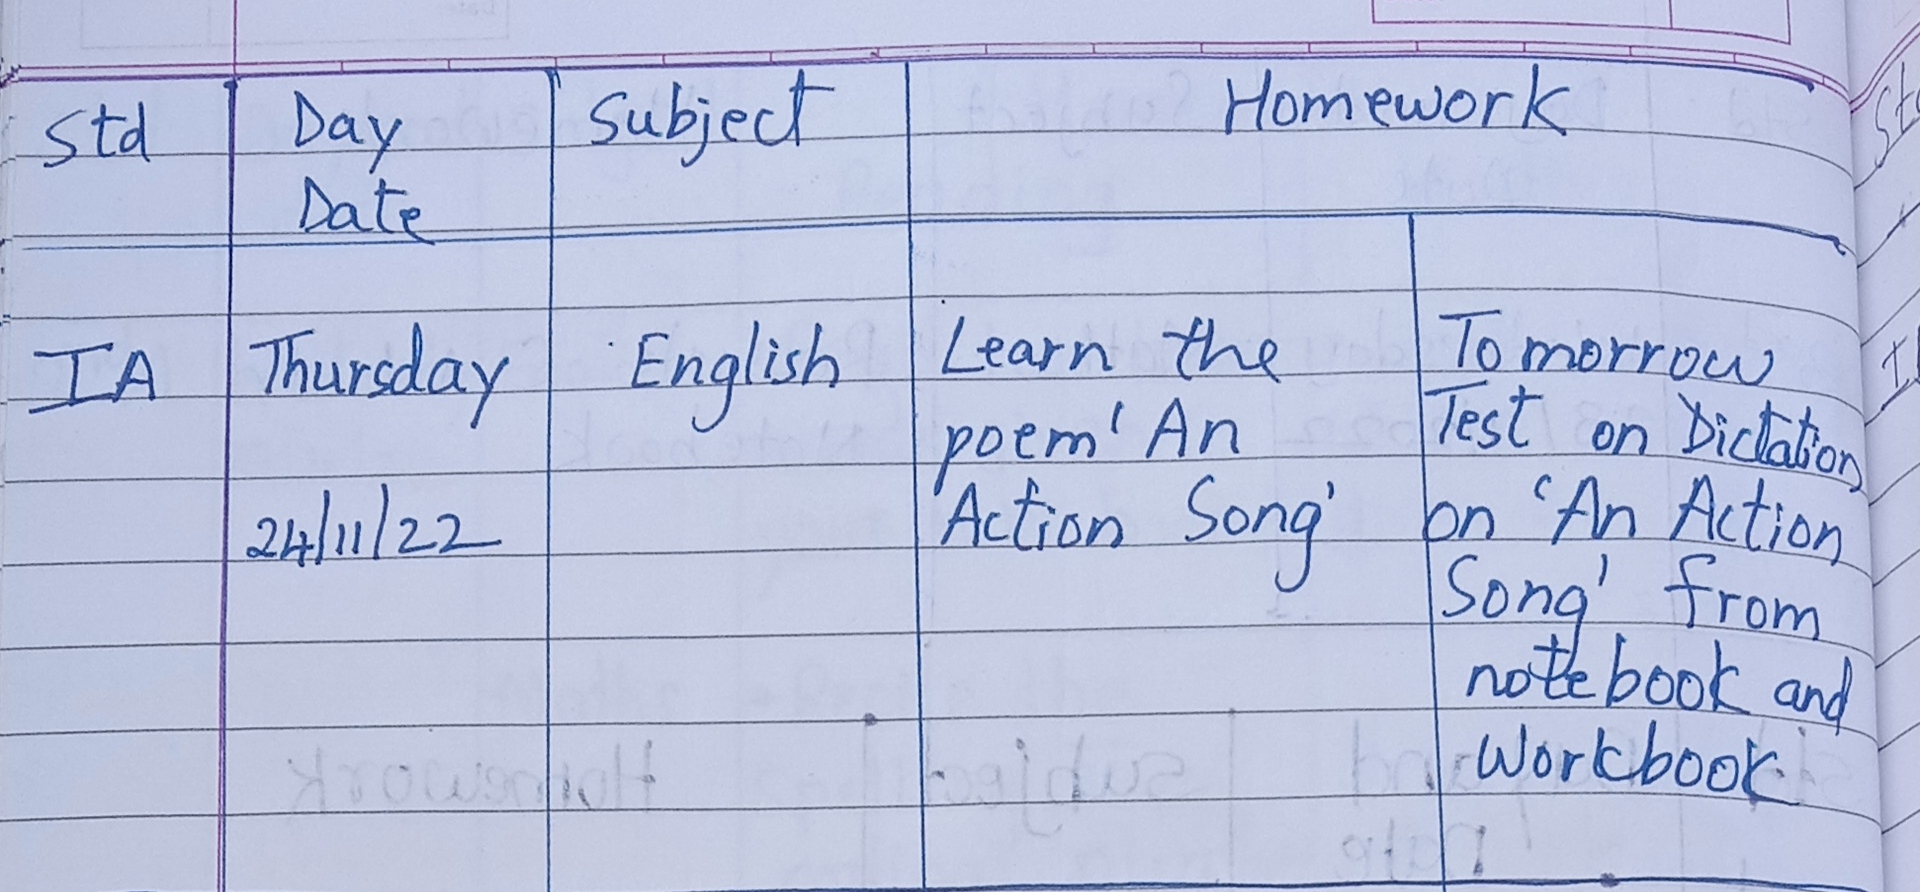 Std Day Subject Homework
Date
IA Thursday English Learn the Tomorrow
poem 'An Test on Dictation
24/11/22 Action Song' on 'An Action
Song' from
notebook and
Workbook